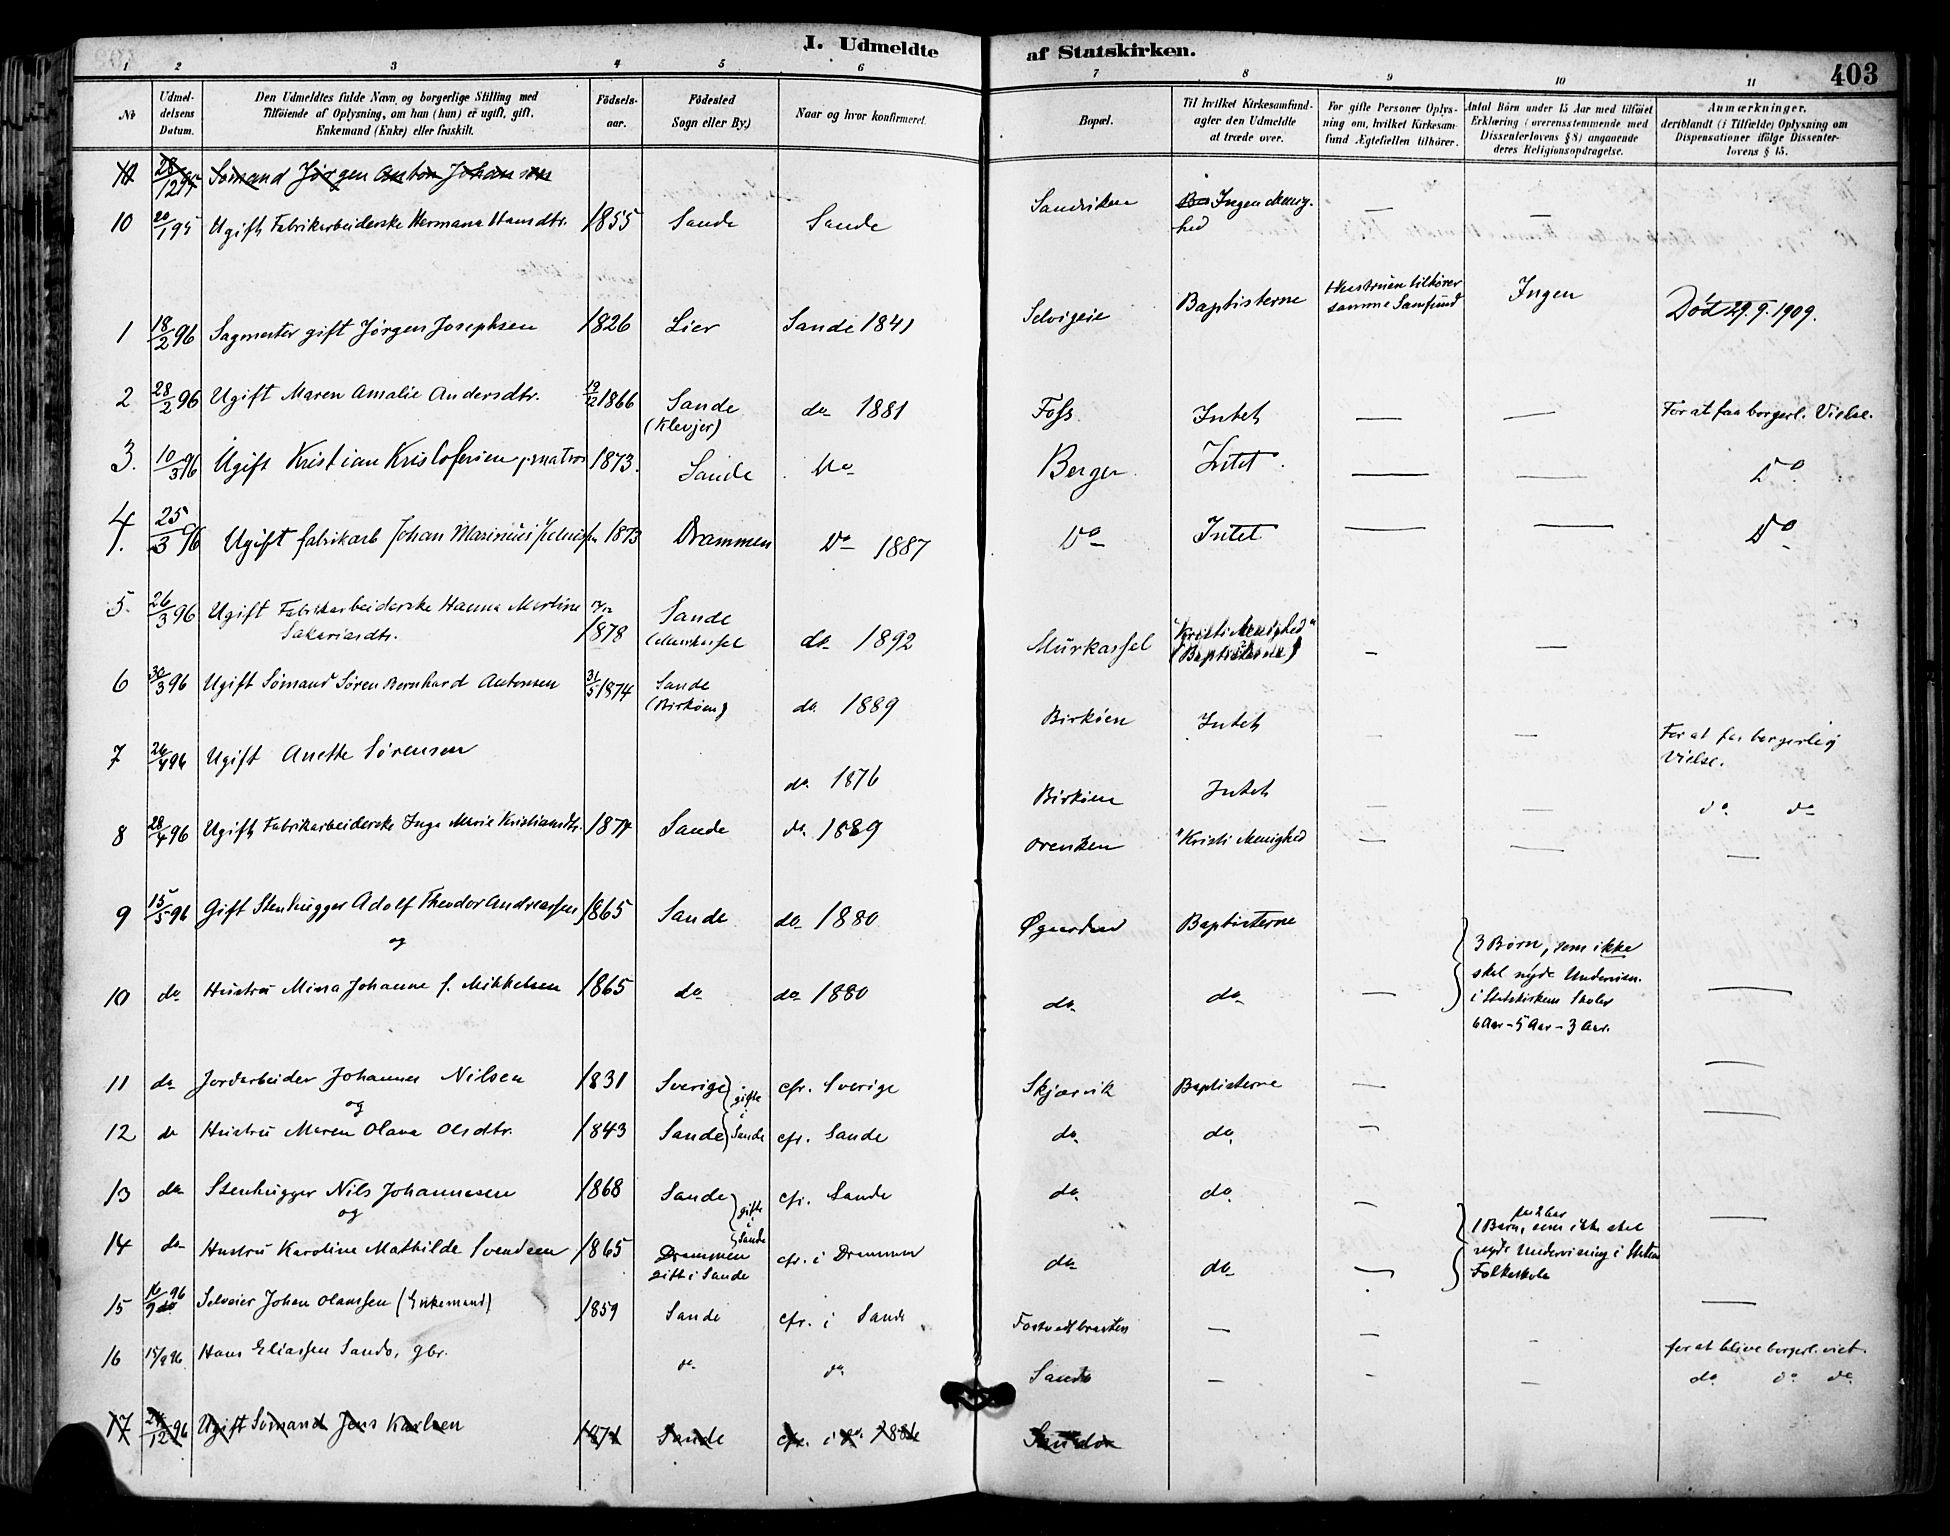 I. Udmeldte af Statskirken.
403
1 2 3 4 5 6 7 8 9 10 11
No
Udmeldelsens Datum.
Den Udmeldtes fulde Navn og borgerlige Stilling med Tilföiende af Oplysning, om han (hun) er ugift, gift, Enkemand (Enke) eller fraskilt.
Födselsaar.
Födested Sogn eller By.)
Naar og hvor konfirmeret.
Bopæl.
Til hvilket Kirkesamfund agter den Udmeldte at træde over.
For gifte Personer Oplysning om, hvilket Kirkesamfund Ægtefællen tilhörer.
Antal Börn under 15 Aar med tilföiet Erklæring (overensstemmende med Dissenterlovens § 8) angaaende deres Religionsopdragelse.
Anmærkninger. deriblandt (i Tilfælde) Oplysning om Dispensationer ifölge Dissenterlovens § 15.
28/12 95 Sømand Jørgen Anton Johansen
10 20/1 95 Ugift Fabrikarbeiderske Hermana Hansdtr. 1855 Sande Sande Sandviken Ingen Menighed — —
1 18/2 96 Sagmester gift Jørgen Josephsen 1826 Lier Sande 1841 Selvigeie Baptisterne Hustruen tilhører samme Samfund Ingen Død 29.9.1909.
2 28/2 96 Ugift Maren Amalie Andersdtr. 19/12 1866 Sande (Klevjer) do 1881 Foss Intet — — For at faa borgerl. Vielse.
3. 10/3 96 Ugift Kristian Kristofersen, matros 1873. Sande Do Berger Intet. — — Do
4. 25/3 96 Ugift fabrikarb Johan Marinius 1873 Drammen Do 1887 Do Intet — — Do
5. 26/3 96 Ugift Fabrikarbeiderske Hanna Martine Sakariasdtr. 1878 Sande (Murkassel do 1892 Murkassel "Kristi Menighed" (Baptisterne) — —
6 30/3 96 Ugift Sømand Søren Bernhard Antonsen 31/5 1874 Sande (Birkøen) do. 1889 Birkøen Intet — — For at faa borgerlig Vielse.
7 26/4 96 Ugift Anette Sørensen do. 1876 Birkøen Intet — — do do
8 28/4 96 Ugift Fabrikarbeiderske Inga Marie Kristiansdtr. 1874 Sande do. 1889 Orenzen "Kristi Menighed — — —
9 15/5 96 Gift Stenhugger Adolf Theodor Andreassen 1865 Sande do 1880 Øgaarden Baptisterne
og
10 do Hustru Mina Johanne f. Mikkelsen 1865 do do 1880 do do — 3 Børn, som ikke skal nyde Undervisn. i Statskirkens Skoler 6 Aar – 5 Aar – 3 Aar. —
11 do Jordarbeider Johannes Nilsen 1831 Sverige cfr. Sverige Skjærvik Baptisterne — —
og gifte i Sande
12 do Hustru Maren Olava Olsdtr. 1843 Sande cfr. Sande do. do. — —
13 do Stenhugger Nils Johannesen 1868 Sande cfr. Sande do. do. —
og gifte i Sande
14 do Hustru Karoline Mathilde Svendsen 1865 Drammen gift i Sande cfr. i Drammen do do — 1 Barn, som ikke skal nyde Undervisning i Statens Folkeskole —
15 16/9 96 Selveier Johan Olaussen (Enkemand) 1859 Sande cfr. i Sande Fostvedtbraaten — — — for at blive borgerl. viet.
16 15/9 96 Hans Eliassen Sando, gbr. do. do. Sando — — — do. do do.
17 24/12 96 Ugift Sømand Jens Karlsen 1871 Sande cfr. i do. 1886 Sandøen